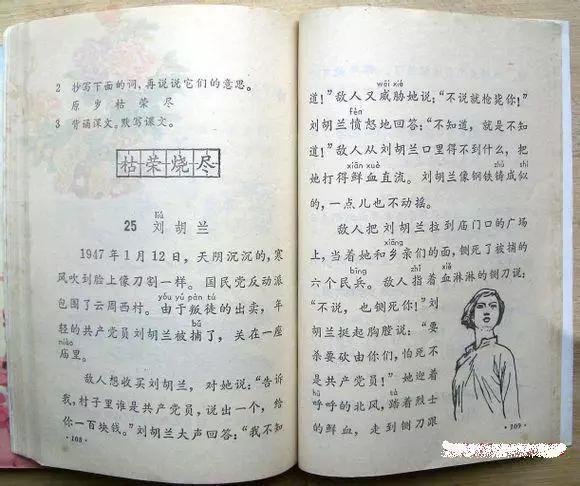 2 抄写下面的词，再说说它们的意思。
原 乡 枯 荣 尽
3 背诵课文。默写课文。
枯荣烧尽
liú
25 刘胡兰
1947年1月12日，天阴沉沉的，寒
风吹到脸上像刀割一样。国民党反动派
yóu yú pàn tú
包围了云周西村。由于叛徒的出卖，年
bǔ
轻的共产党员刘胡兰被捕了，关在一座
miào
庙里。
敌人想收买刘胡兰，对她说：“告诉
我，村子里谁是共产党员，说出一个，给
你一百块钱。”刘胡兰大声回答：“我不知
·108·
wēi xié
道！”敌人又威胁她说：“不说就枪毙你！”
fèn
刘胡兰愤怒地回答：“不知道，就是不知
道！”敌人从刘胡兰口里得不到什么，把
xiān xuè zhù shì
她打得鲜血直流。刘胡兰像钢铁铸成似
的，一点儿也不动摇。
敌人把刘胡兰拉到庙门口的广场
xiāng
上，当着她和乡亲们的面，铡死了被捕的
zhǐ xiě
六个民兵。敌人指着血淋淋的铡刀说：
“不说，也铡死你！”刘
胡兰挺起胸膛说：“要
杀要砍由你们，怕死不
是共产党员！”她迎着
hū tà
呼呼的北风，踏着烈士
的鲜血，走到铡刀跟
·109·